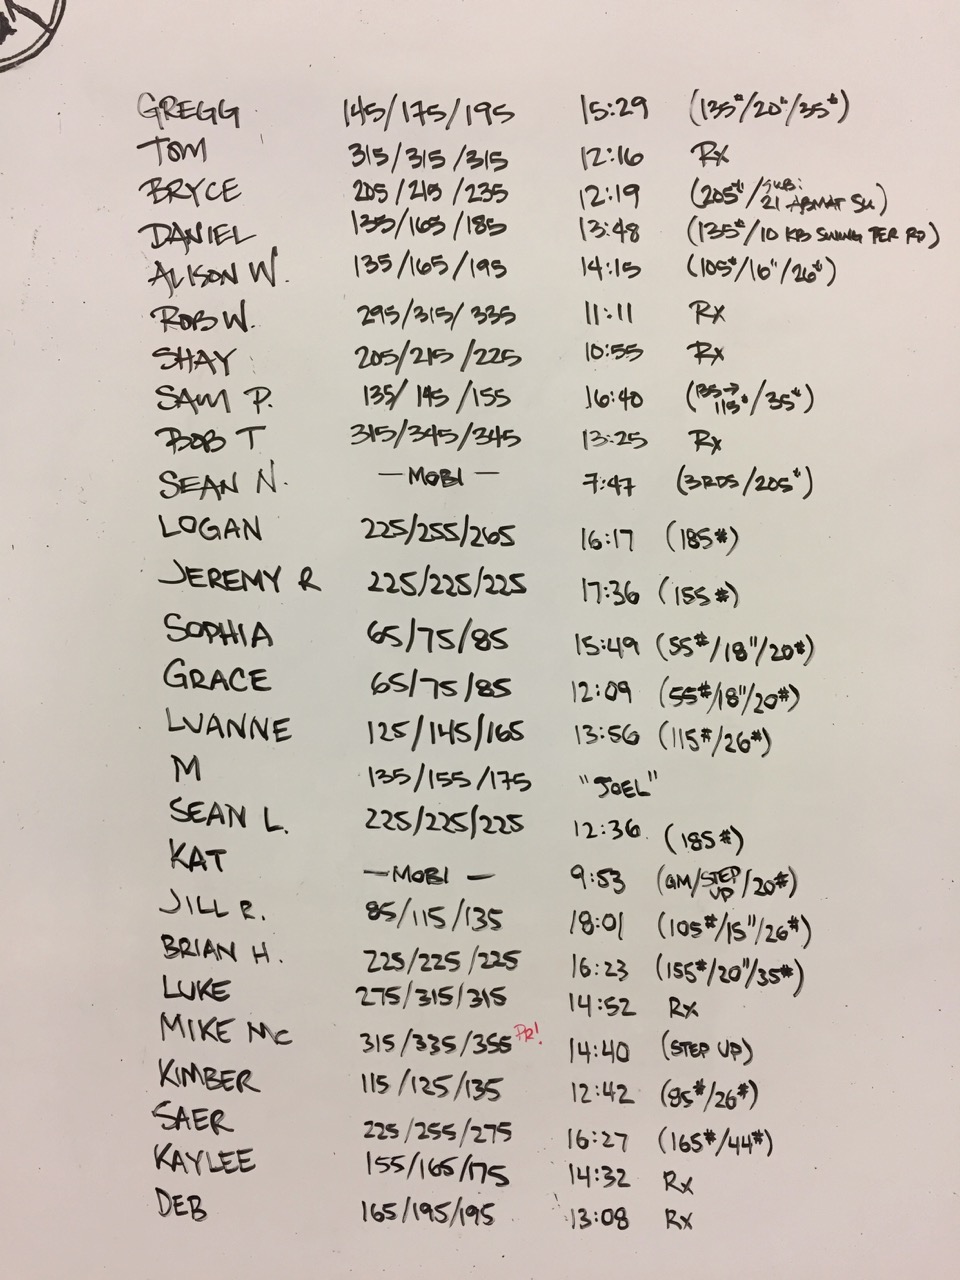 GREGG 145/175/195 15:29 (135#/20"/35#)
TOM 315/315/315 12:16 Rx
BRYCE 205/215/235 12:19 (205#/SUB: 21 ABMAT SU)
DANIEL 135/165/185 13:48 (135#/10 KB SWING PER RD)
ALISON W. 135/165/195 14:15 (105#/16"/26#)
ROB W. 295/315/335 11:11 Rx
SHAY 205/215/225 10:55 Rx
SAM P. 135/145/155 16:40 (135→115#/35#)
BOB T 315/345/345 13:25 Rx
SEAN N. —MOBI— 7:47 (3RDS/205#)
LOGAN 225/255/265 16:17 (185#)
JEREMY R 225/225/225 17:36 (155#)
SOPHIA 65/75/85 15:49 (55#/18"/20#)
GRACE 65/75/85 12:09 (55#/18"/20#)
LUANNE 125/145/165 13:56 (115#/26#)
M 135/155/175 "JOEL"
SEAN L. 225/225/225 12:36 (185#)
KAT —MOBI— 9:53 (GM/STEP UP/20#)
JILL R. 85/115/135 18:01 (105#/15"/26#)
BRIAN H. 225/225/225 16:23 (155#/20"/35#)
LUKE 275/315/315 14:52 Rx
MIKE MC 315/335/355 PR! 14:40 (STEP UP)
KIMBER 115/125/135 12:42 (85#/26#)
SAER 225/255/275 16:27 (165#/44#)
KAYLEE 155/165/175 14:32 Rx
DEB 165/195/195 13:08 Rx